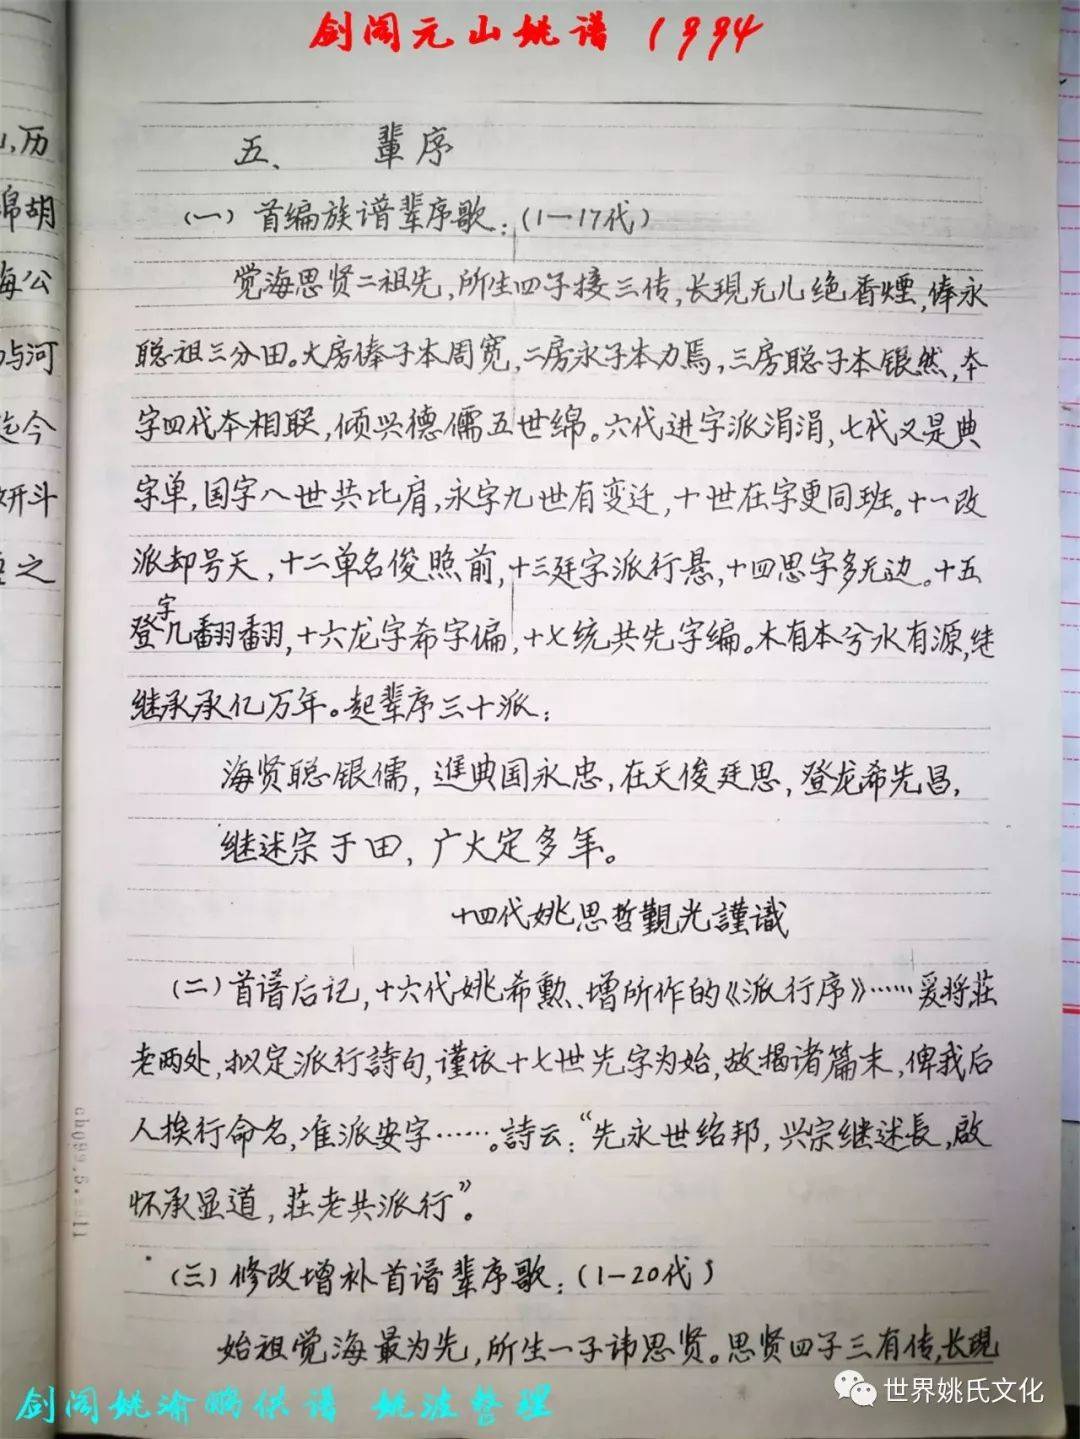 剑阁元山姚谱 1994
山,历
锦胡
海公
与河
迄今
研斗
之
五、 輩序
(一)首编族谱辈序歌:(1—17代)
觉海思贤二祖先,所生四子接三传,长現无儿绝香煙,俸永
聪祖三分田。大房俸子本周宽,二房永子本力焉,三房聪子本银然,本
字四代本相联,倾兴德儒五世绵。六代进字派涓涓,七代又是典
字单,国字八世共比肩,永字九世有变迁,十世在字更同班。十一改
派却号天,十二单名俊照前,十三廷字派行悬,十四思字多无边。十五
登字几翻翻,十六龙字希字偏,十七统共先字编。木有本兮水有源,继
继承承亿万年。起辈序三十派:
海贤聪银儒,進典国永忠,在天俊廷思,登龙希先昌,
继述宗于田,广大定多年。
十四代姚思哲觀光謹識
(二)首谱后记,十六代姚希勲、增所作的《派行序》……爰将莊
老两处,拟定派行詩句,谨依十七世先字为始,故揭诸篇末,俾我后
人挨行命名,准派安字……。詩云:“先永世绍邦,兴宗继述長,啟
怀承显道,莊老共派行”。
(三)修改增补首谱辈序歌:(1—20代)
始祖觉海最为先,所生一子讳思贤。思贤四子三有传,长現
世界姚氏文化
剑阁姚渝鹏供谱 姚波整理